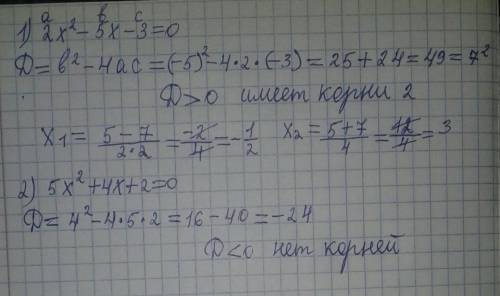 a b c
1) 2x² - 5x - 3 = 0
D = b² - 4ac = (-5)² - 4·2·(-3) = 25 + 24 = 49 = 7²
D > 0 имеет корни 2
x₁ = (5-7)/(2·2) = -2/4 = -1/2 x₂ = (5+7)/4 = 12/4 = 3
2) 5x² + 4x + 2 = 0
D = 4² - 4·5·2 = 16 - 40 = -24
D < 0 нет корней